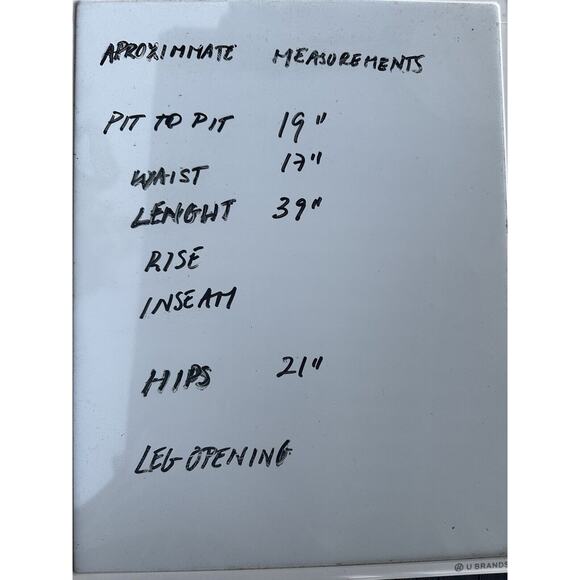 APROXIMMATE MEASUREMENTS
PIT TO PIT 19"
WAIST 17"
LENGHT 39"
RISE
INSEAM
HIPS 21"
LEG OPENING
U BRANDS